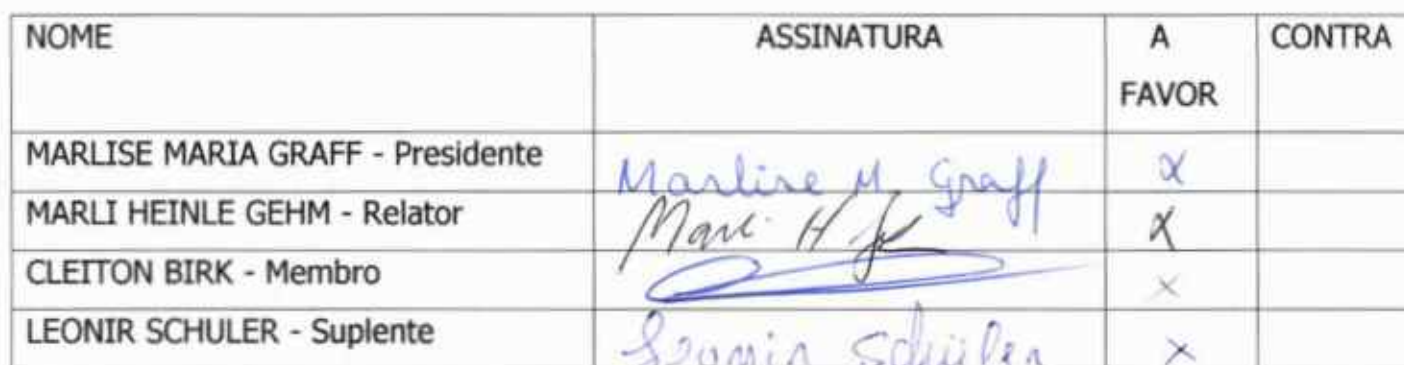 NOME ASSINATURA A FAVOR CONTRA
MARLISE MARIA GRAFF - Presidente Marlise M Graff x
MARLI HEINLE GEHM - Relator Marli H. x
CLEITON BIRK - Membro x
LEONIR SCHULER - Suplente Leonir Schuler x